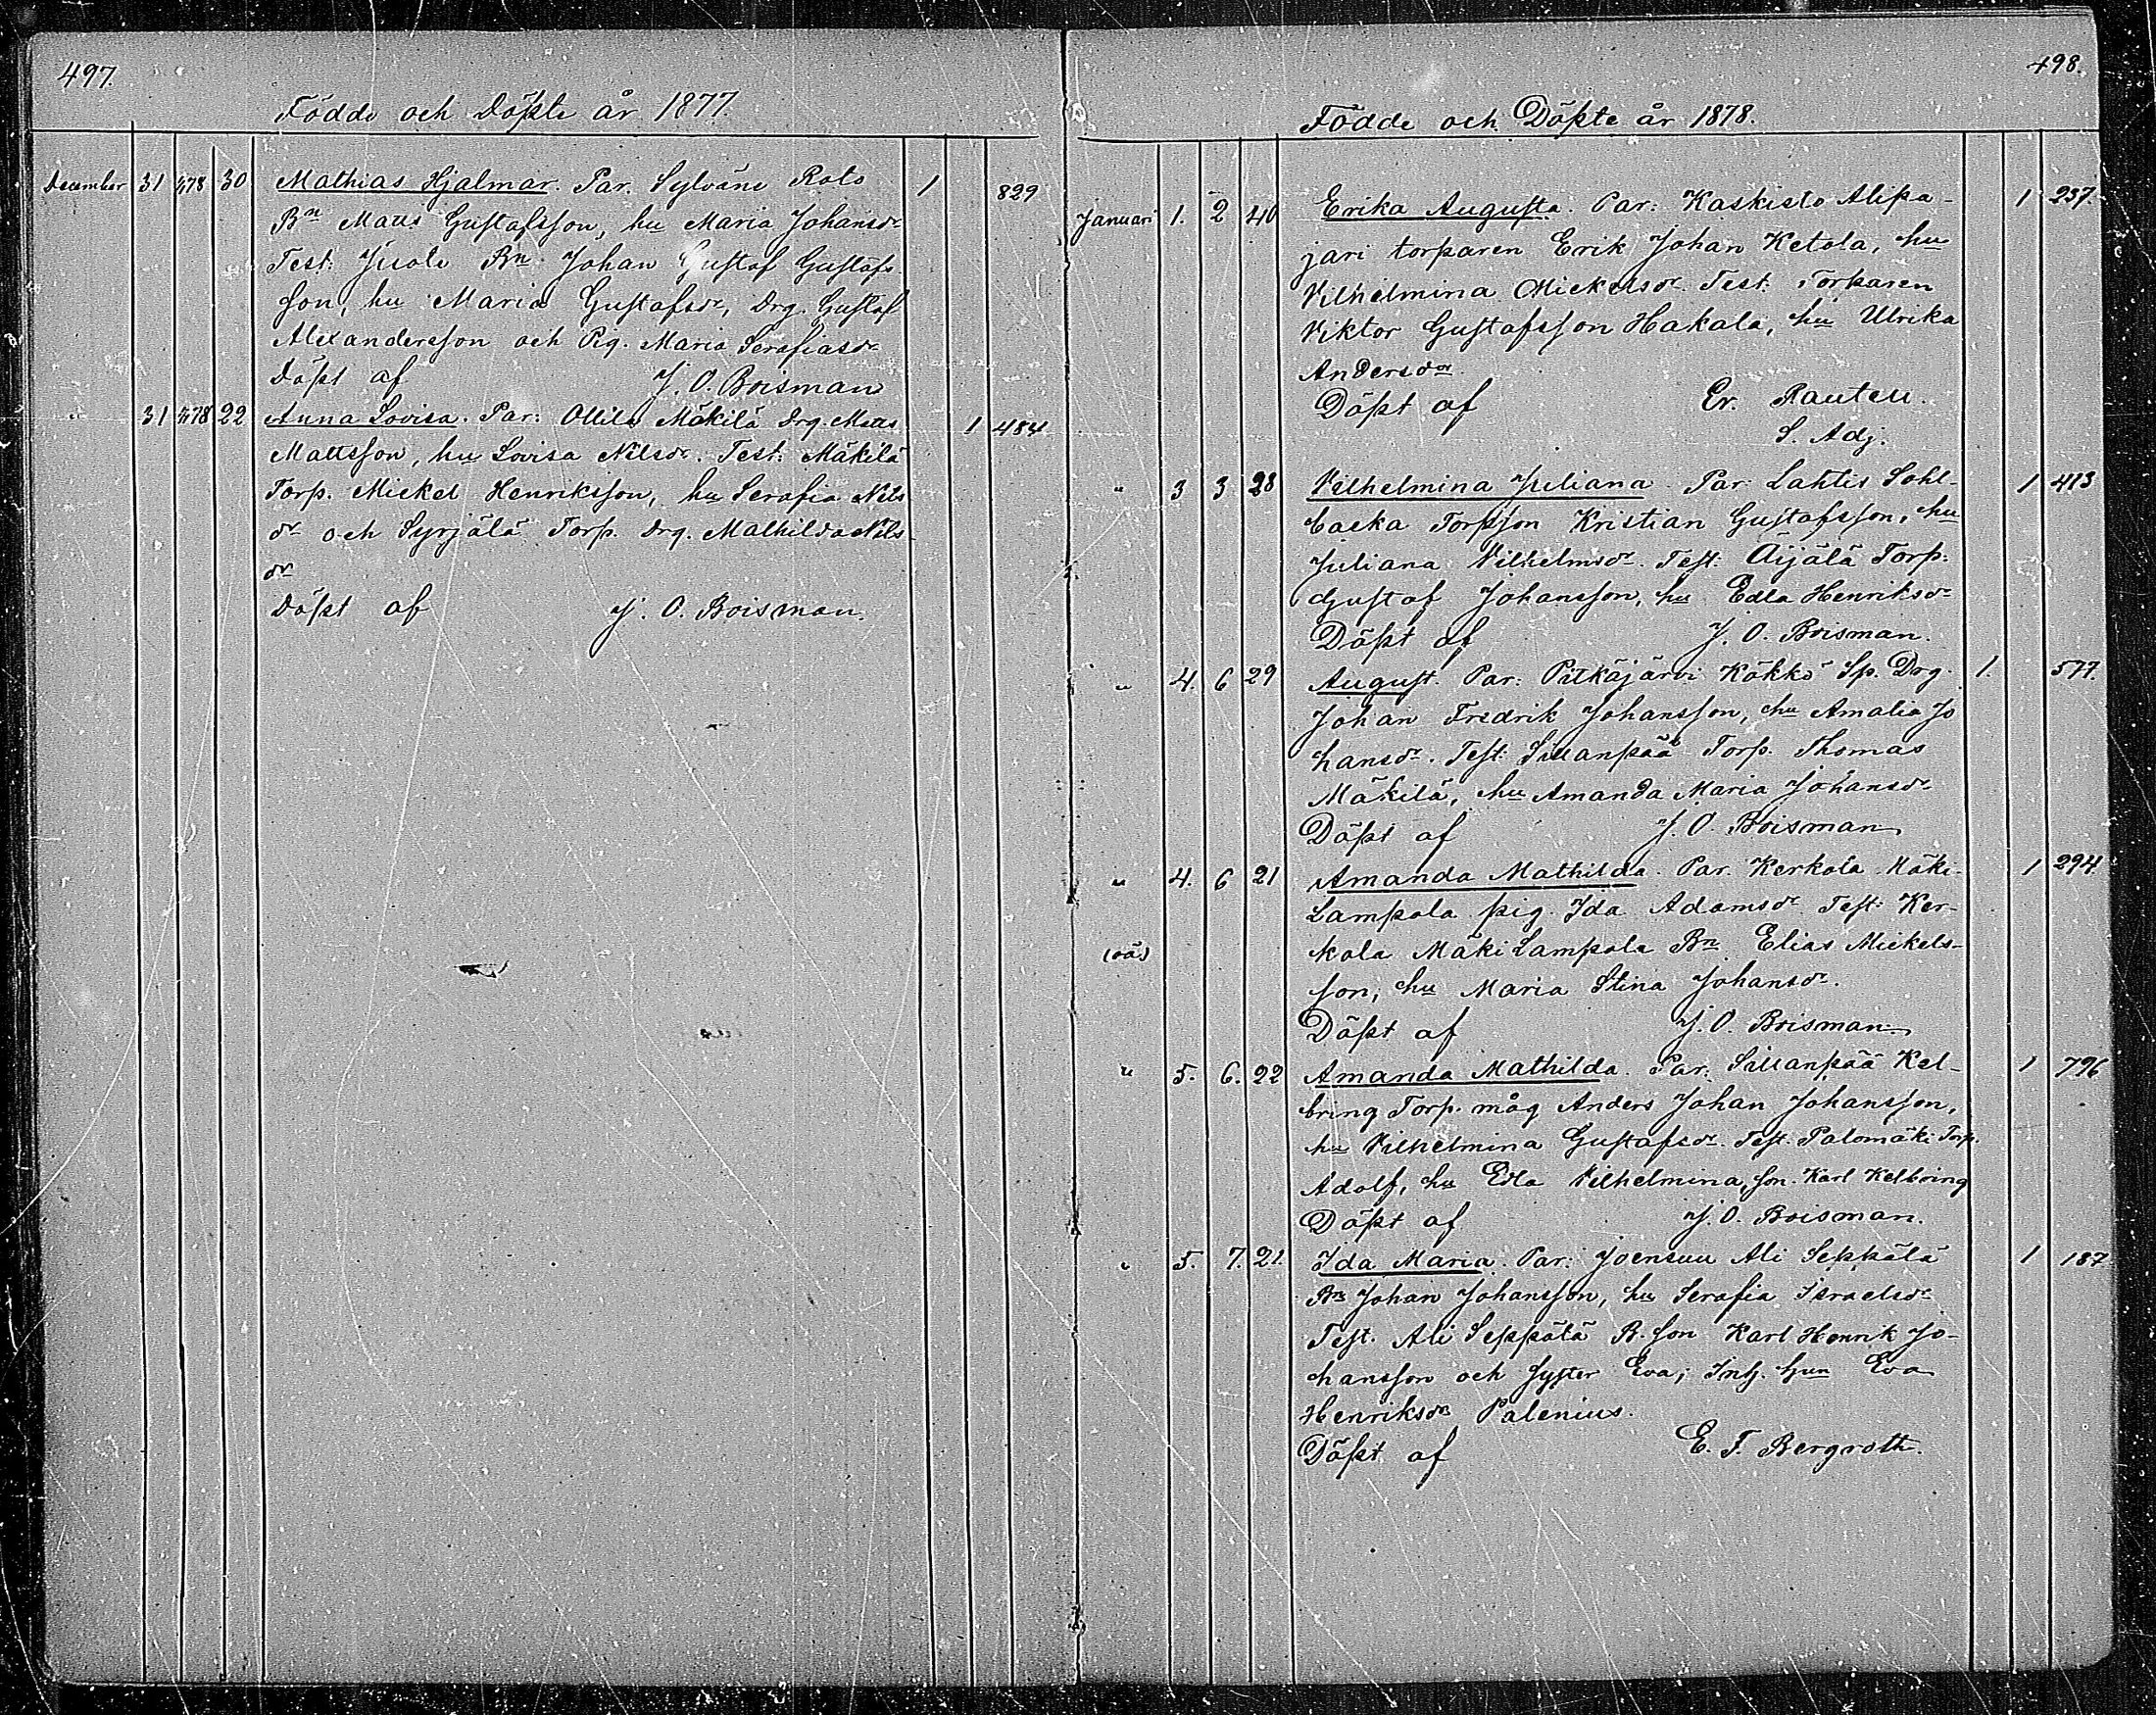 497.
Födde och Döpte år 1877.
December 31 1/1 78 30 Mathias Hjalmar. Par. Sylväne Rato 1 829
Bn Matts Gustafsson, hu Maria Johansdr
Test: Juola Bn Johan Gustaf Gustafs-
son, hu Maria Gustafsdr, Drg. Gustaf
Alexandersson och Pig. Maria Serafiasdr
Döpt af J. O. Boisman
" 31 78 22 Anna Lovisa. Par: Ollila Mäkilä Drg. Matts 1 484
Mattsson, hu Lovisa Nilsdr. Test: Mäkilä
Torp. Mickel Henriksson, hu Serafia Nils
dr och Syrjälä Torp. Drg. Mathilda Nils-
dr
Döpt af J. O. Boisman.
498.
Födde och Döpte år 1878.
Januari 1. 2 40 Erika Augusta. Par: Kaskisto Alipa- 1 237.
jari torparen Erik Johan Ketola, hu
Vilhelmina Mickelsdr. Test. Torparen
Viktor Gustafsson Hakala, hu Ulrika
Andersdr
Döpt af Er. Rauteu.
S. Adj.
" 3 3 28 Vilhelmina Juliana. Par: Lahtis Sohl- 1 413
backa Torpsson Kristian Gustafsson, hu
Juliana Vilhelmsdr. Test. Äijälä Torp.
Gustaf Johansson, hu Edla Henriksdr
Döpt af J. O. Boisman.
" 4. 6 29 August. Par: Pitkäjärvi Kökkö Sp. Drg. 1. 577.
Johan Fredrik Johansson, hu Amalia Jo
hansdr. Test. Sillanpää Torp. Thomas
Mäkilä, hu Amanda Maria Johansdr
Döpt af J. O. Boisman
" 4. 6 21 Amanda Mathilda. Par. Kerkola Mäki- 1 294
Lampola pig. Ida Adamsdr Test: Ker-
(oä) kola Mäki Lampola Bn Elias Mickels-
son, hu Maria Stina Johansdr.
Döpt af J. O. Boisman.
" 5. 6. 22 Amanda Mathilda. Par: Sillanpää Kel- 1 796
bring Torp. måg Anders Johan Johansson,
hu Vilhelmina Gustafsdr. Test. Palomäki Torp.
Adolf, hu Edla Vilhelmina, son. Karl Kelbring
Döpt af J. O. Boisman.
" 5. 7. 21. Ida Maria. Par: Joensuu Ali Seppälä 1 187
Bn Johan Johansson, hu Serafia Israelsdr
Test. Ali Seppälä B. son Karl Henrik Jo-
hansson och syster Eva; Inh. hun Eva
Henriksdr Palenius.
Döpt af E. F. Bergroth.